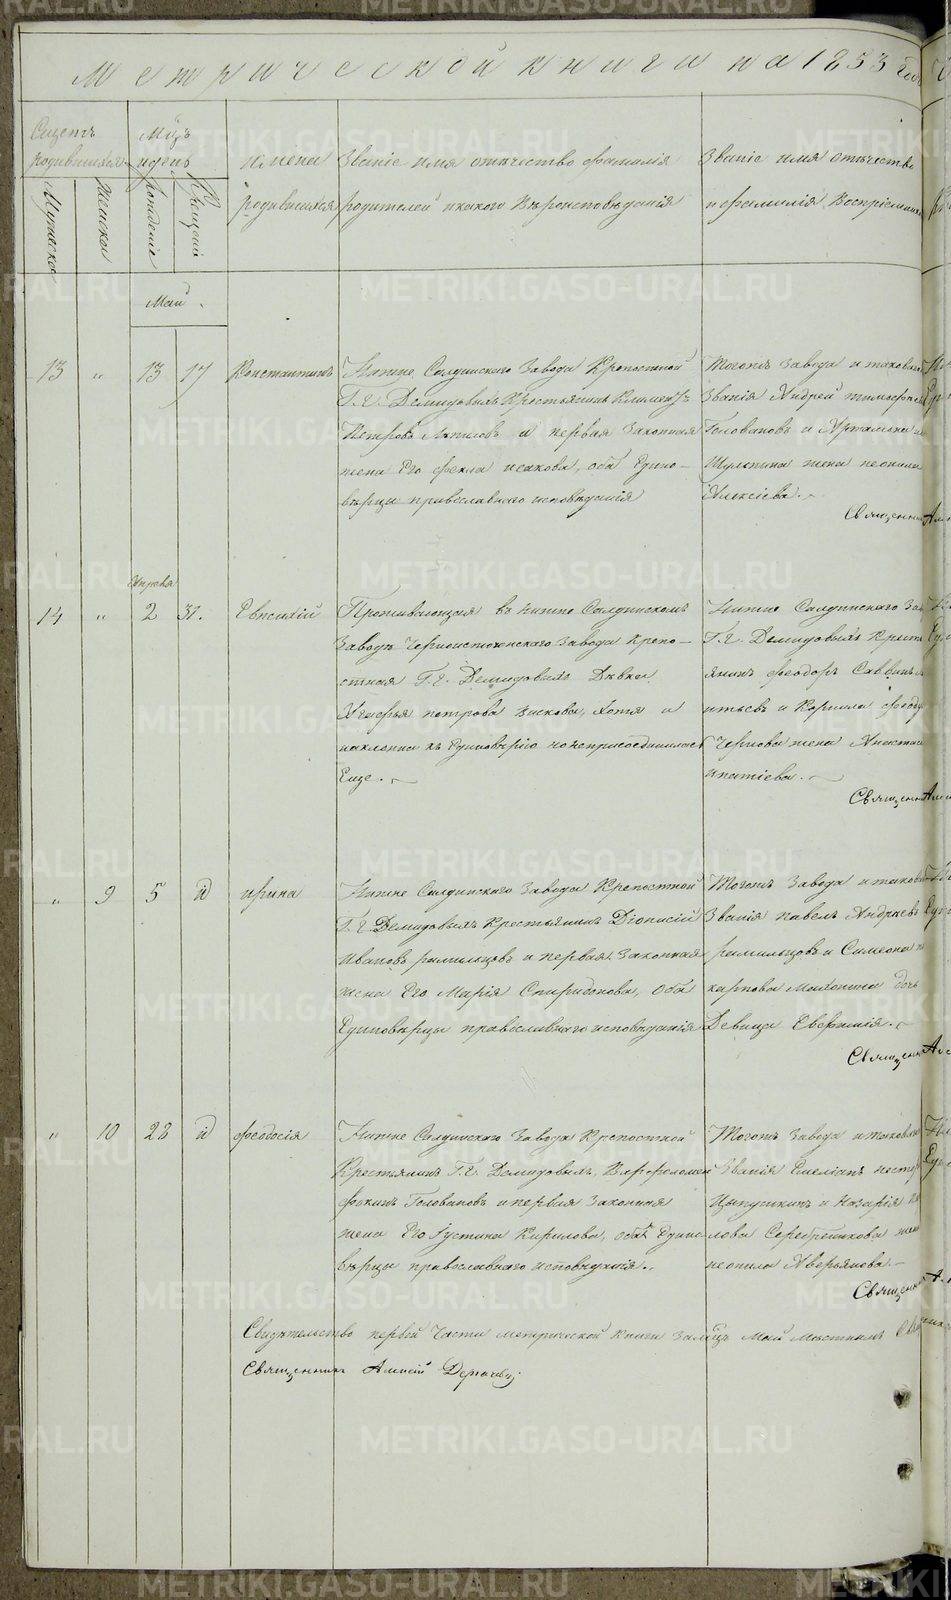 Метрической книги на 1853 годъ
Счетъ родившихся
Мцъ и день
Имена родившихся
Званіе имя отѣчество фамилія
родителей и какого Вѣроисповѣданія
Званіе имя отѣчество
и фамилія Воспріемник
Мужеска
Женска
Рожденіе
Крещеніе
Май.
13 " 13 17 Константинъ
Нижне Салдинскаго Завода Крепостной
Г.г. Демидовыхъ Крестьянинъ Климентъ
Петровъ и первая Законная
жена Его Фекла Исакова, оба Едино-
вѣрцы православнаго исповѣданія
Тогожъ Завода и таковаго
Званія Андрей Тимофеевъ
Головановъ и Артамона
Шулпина жена Неонила
Алексѣева.
Священни
14 " Апреля 2 31. Евпсихій
Проживающая въ Нижне Салдинскомъ
Заводѣ Черноисточенскаго Завода Крепо-
стная Г.г. Демидовыхъ Дѣвка
Агафья Петрова Хотя и
наклонна къ Единовѣрію но неприсоединилась
Еще.
Нижне Салдинскаго Зав
Г.г. Демидовыхъ Кресть
янинъ Феодоръ Саввинъ
и Феод
Чернова жена Анастас
Ипатіева.
Священни
" 9 5 Ирина
Нижне Салдинскаго Завода Крепостной
Г.г. Демидовыхъ Крестьянинъ Діонисій
Ивановъ Фамильцовъ и первая Законная
жена Его Марія Спиридонова, Оба
Единовѣрцы православнаго исповѣданія
Тогожъ Завода и таков
Званія Павелъ Андреевъ
Фамильцовъ и Симеона
карпова дочь
Девица Евфимія.
Священ
" 10 28 Феодосія
Нижне Салдинскаго Завода Крепостной
Крестьянинъ Г.г. Демидовыхъ, Варфоломей
Фокинъ Головановъ и первая Законная
жена Его Іустина Кирилова, оба Едино-
вѣрцы православнаго исповѣданія.
Тогожъ Завода и таковаго
Званія Емеліанъ Нестер
и Назарія
лова Серебренкова жен
Неонила Аверьянова.
Священни
Свидѣтельство первой Части метрической книги За мцъ Май
Священникъ Алексій
METRIKI.GASO-URAL.RU